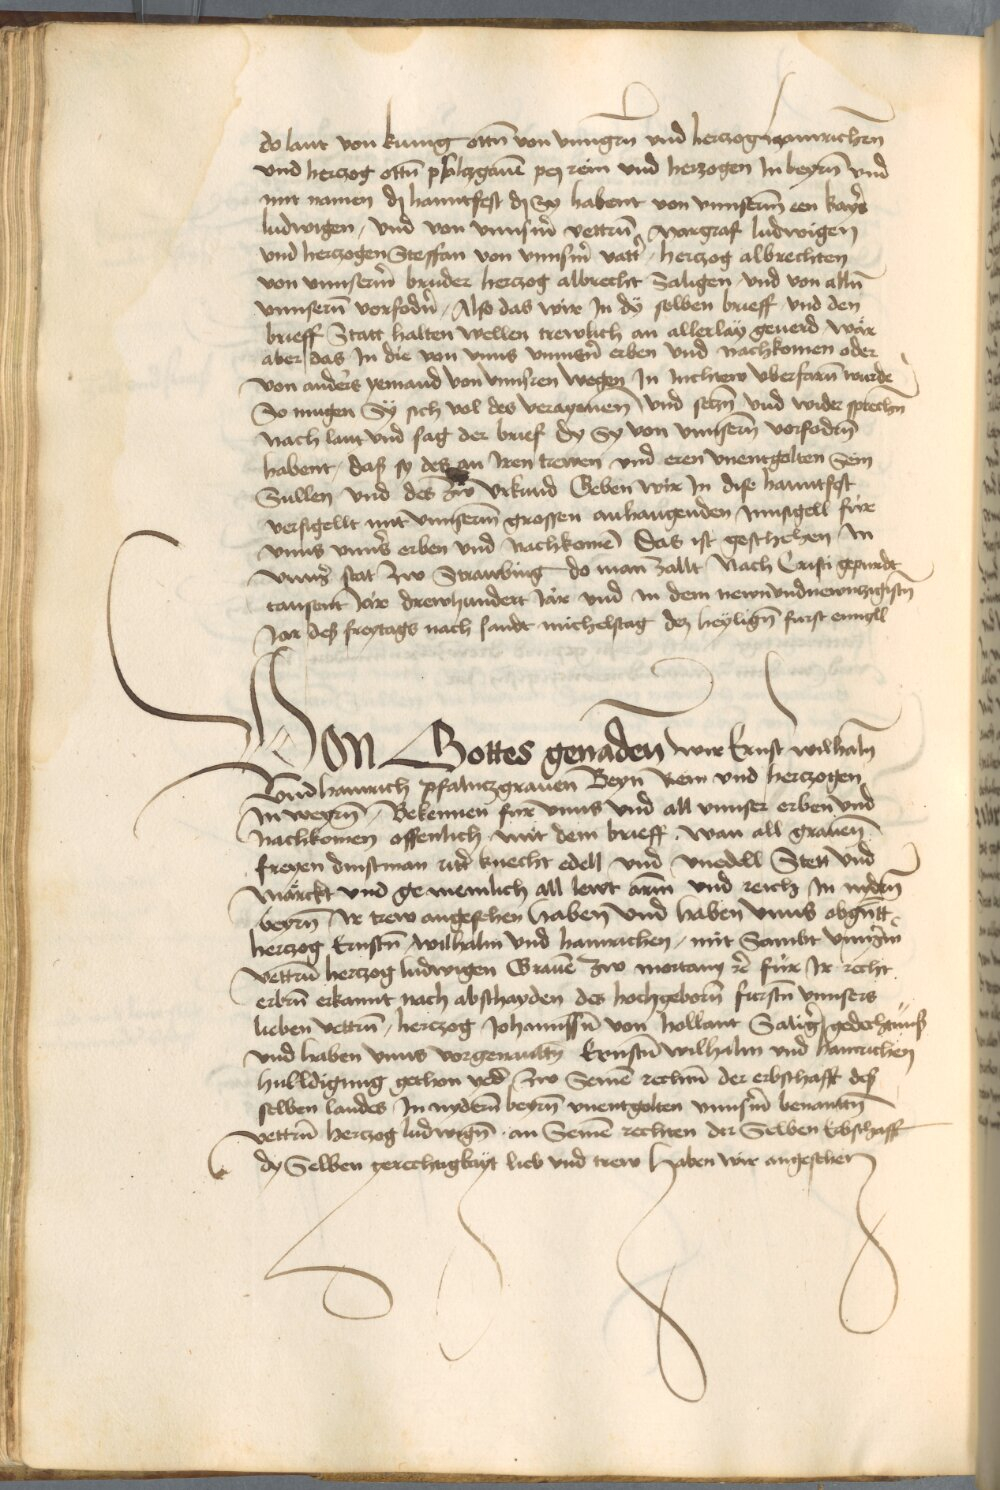 do laut von kunig ottn von vnngrn vnd herczog hainrichen
vnd herczog ottn pfalczgauen pey rein vnd herczogen In beyrn vnd
mit namen dy hanntfest dy Sy habent von vnnserm een kayser
ludwigen, vnd von vnnserm vettern Margraf ludwigen
vnd herczogen Steffan von vnnserm vatter, herczog albrechten
von vnnserm bruder herczog albrecht Saligen vnd von alln
vnnsern vorfodern, Also das wir In dy selben brieff vnd den
brieff Statt halten wellen trewlich an allerlay geuerd wär
aber das In die von vnns vnnsern erben vnd nachkomen oder
von anders yemand von vnnsren wegen In Inchtew vberfarn wurde
So mugen Sy sich wol des verayanen vnd seczn vnd wider sprechn
nach laut vnd sag der brief dy Sy von vnnsern vorfodern
habent, das sy des an Iren trewen vnd eren vnentgolten Sein
Sullen vnd des zw vrkund Geben wir In dise hanntfest
versigellt mit vnnserm grossen anhangenden Innsigell für
vnns vnnser erben vnd nachkomen Das ist geschehen In
vnnser stat zw Straubing do man zallt Nach Cristi gepurdt
tausent Jar drewhundert Jar vnd in dem newnvndnewnczigistn
Jar des freytags nach sandt michelstag des heyligen furst enngll
VON Gottes genaden wir Ernst wilhalm
Vnd hainrich pfalntzgrauen Beyn Rein vnd herczogen
In beyrn, Bekennen fur vnns vnd all vnnser erben vnd
nachkomen offenlich mit dem brieff. wan all grauen
freyen dinstman ritter knecht edell vnd vnedell Stett vnd
märckt vnd gemeinlich all lewt arm vnd reich In nydern
beyrn Ir trew angesehen haben vnd haben vnns obgnantt
herczog Ernstn wilhalm vnd hainrichen, mit Sambt vnnserm
vettern herczog ludwigen Grauen zw mortany etc für Ir recht
erben erkannt nach abschayden des hochgeborn furstn vnnsers
lieben vettern, herczog Johannsen von hollant Saliger gedechtnuss
vnd haben vnns vorgenannten Ernstn wilhalm vnd hainrichen
hulldigung gethon yeder zw Seinen rechten der erbschafft des
selben landes In nydern beyrn vnentgolten vnnserm benannten
vettern herczog ludwigen. an Seinen rechten der Selben Erbschafft
dy Selben gerechtigkayt lieb vnd trew haben wir angesehen